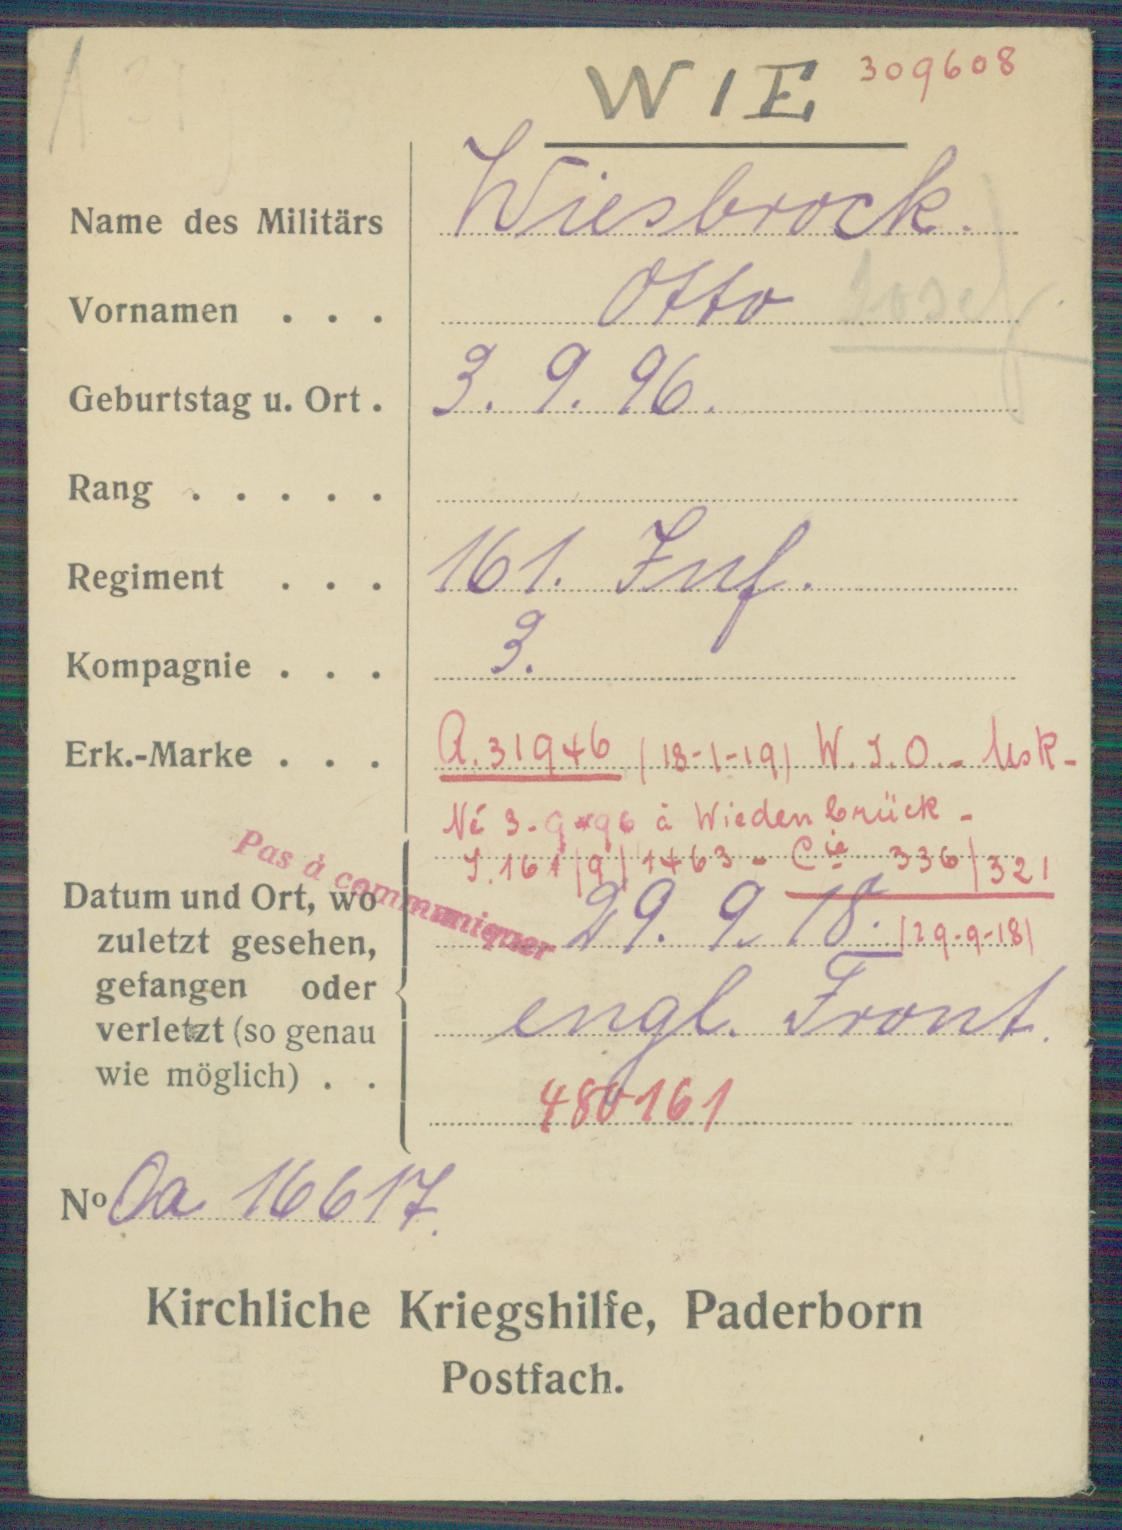 WIE 309608
Name des Militärs Wiesbrock.
Vornamen . . . Otto Josef
Geburtstag u. Ort . 3. 9. 96.
Rang . . . . .
Regiment . . . 161. Inf.
Kompagnie . . . 3.
Erk.-Marke . . . A. 31946 (18-1-19) W. J. O. - Msk -
Né 3-9-96 à Wiedenbrück -
J. 161/9/1463 - Cie 336/321
Pas à communiquer
Datum und Ort, wo 29. 9. 18. (29-9-18)
zuletzt gesehen,
gefangen oder engl. Front.
verletzt (so genau
wie möglich) . . 480161
No Oa 16617.
Kirchliche Kriegshilfe, Paderborn
Postfach.